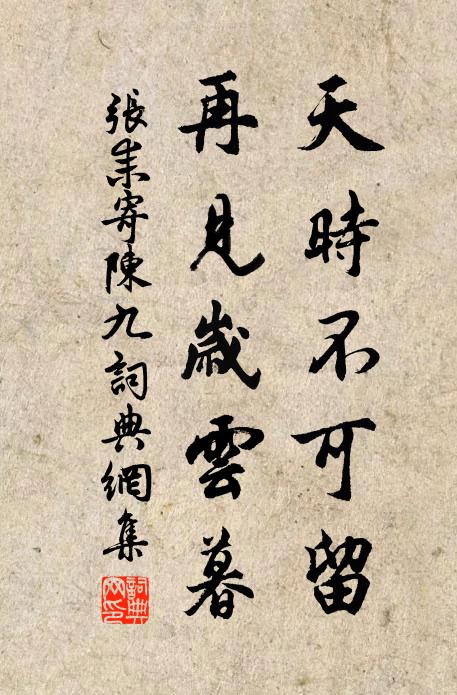 天時不可留
再見歲雲暮
張耒寄陳九詞典網集
詞典
网印